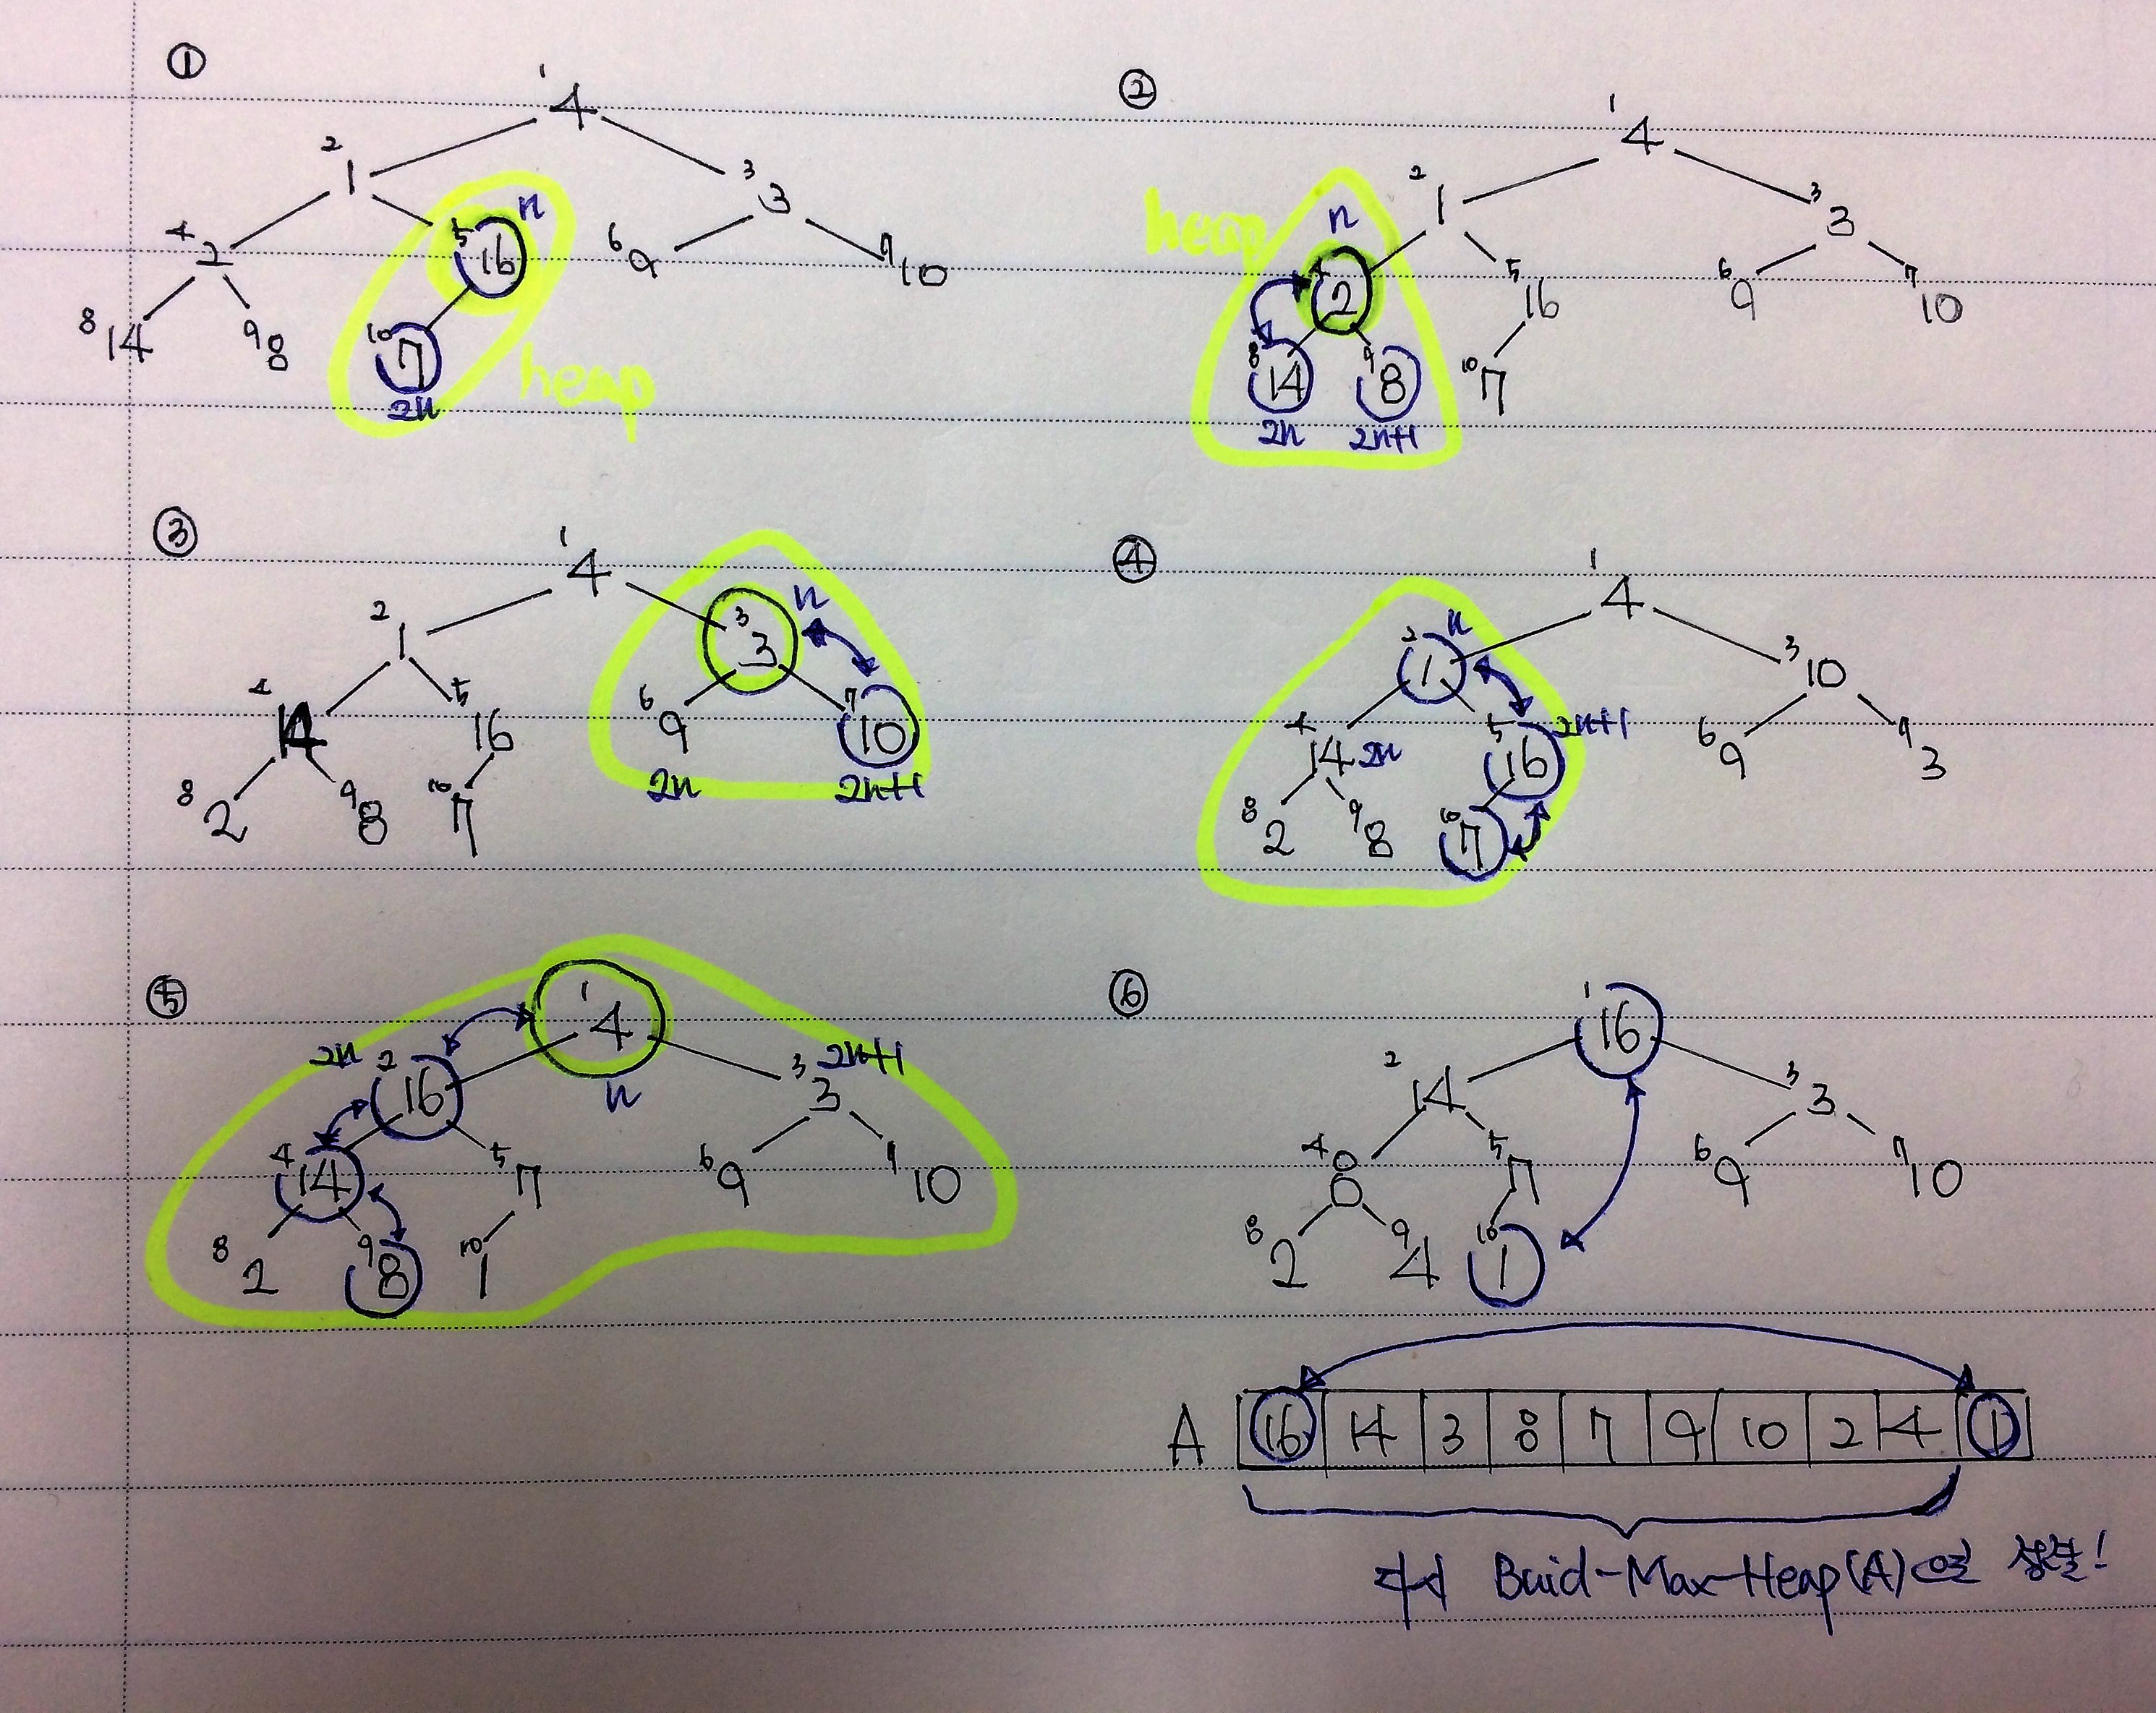 ①
1
4
2
1
3
3
4
2
5
16
n
6
9
7
10
8
14
9
8
10
7
2n
heap
②
1
4
2
1
3
3
heap
n
4
2
5
16
6
9
7
10
8
14
9
8
10
7
2n
2n+1
③
1
4
2
1
3
3
n
4
14
5
16
6
9
7
10
8
2
9
8
10
7
2n
2n+1
④
1
4
2
1
n
3
10
4
14
2n
5
16
2n+1
6
9
7
3
8
2
9
8
10
7
⑤
1
4
n
2n
2
16
3
3
2n+1
4
14
5
7
6
9
7
10
8
2
9
8
10
1
⑥
1
16
2
14
3
3
4
8
5
7
6
9
7
10
8
2
9
4
10
1
A 16 14 3 8 7 9 10 2 4 1
Buid-Max-Heap(A)으로